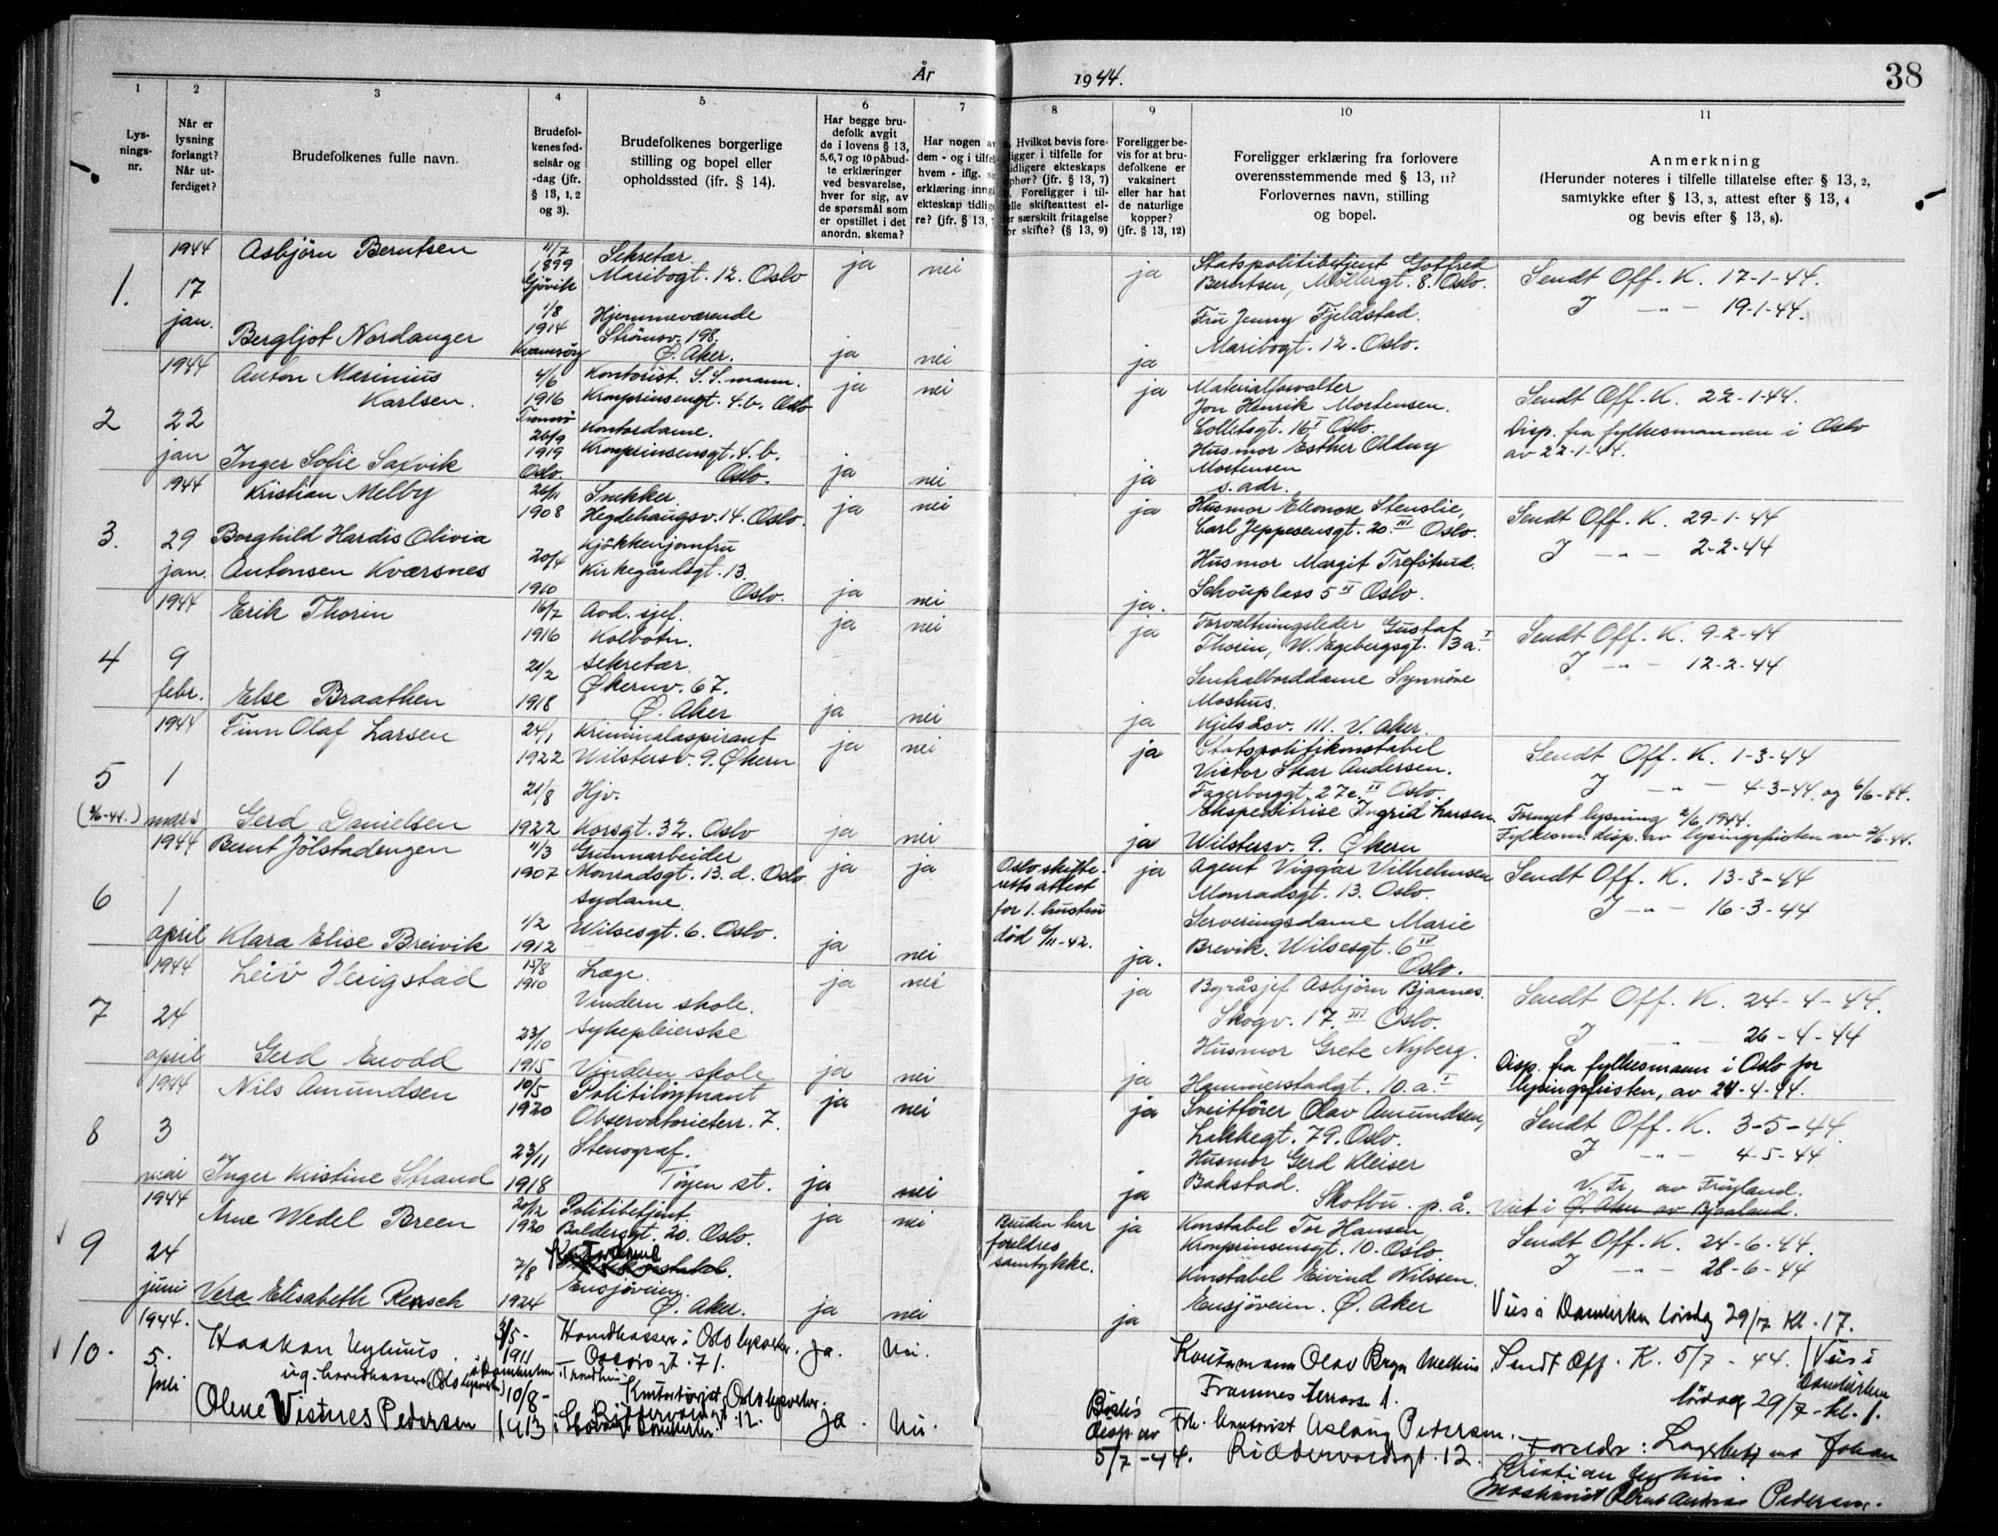 År 1944.
38
1
Lys-
nings-
nr.
2
Når er
lysning
forlangt?
Når ut-
ferdiget?
3
Brudefolkenes fulle navn.
4
Brudefol-
kenes fød-
selsår og
-dag (jfr.
§ 13, 1, 2
og 3).
5
Brudefolkenes borgerlige
stilling og bopel eller
opholdssted (ifr. § 14).
6
Har begge bru-
defolk avgit
de i lovens § 13,
5, 6, 7 og 10 påbud-
te erklæringer
ved besvarelse,
hver for sig, av
de spørsmål som
er opstillet i det
anordn. skema?
7
Har nogen av
dem - og i tilfel
hvem - iflg. s
erklæring inng
ekteskap tidlig
re? (jfr. § 13,
8
Hvilket bevis fore-
ligger i tilfelle for
tidligere ekteskaps
ophør? (jfr. § 13, 7)
Foreligger i til-
felle skifteattest el-
er særskilt fritagelse
for skifte? (§ 13, 9)
9
Foreligger be-
vis for at bru-
defolkene er
vaksinert
eller har hat
de naturlige
kopper?
(jfr. § 13, 12)
10
Foreligger erklæring fra forlovere
overensstemmende med § 13, 11?
Forlovernes navn, stilling
og bopel.
11
Anmerkning
(Herunder noteres i tilfelle tillatelse efter § 13, 2,
samtykke efter § 13, 3, attest efter § 13, 4
og bevis efter § 13, 8).
1.
1944
17
jan.
Asbjörn Berntsen
11/7
1899
Gjövik
Sekretær.
Maribogt. 12. Oslo
ja
nei
ja
Statspolitibetjent Gotfred
Berntsen, Möllergt. 8. Oslo.
Sendt Off. K. 17-1-44.
J — " — 19-1-44.
Bergljot Nordanger
1/8
1914
Kvamsöy
Hjemmeværende
Strömsv. 198.
Ø. Aker.
ja
nei
ja
Fru Jenny Fjeldstad.
Maribogt. 12. Oslo.
2
1944
22
jan
Anton Marinius
Karlsen.
4/6
1916
Tromsö
Kontorist. S.S. mann.
Kronprinsengt. 4.b. Oslo
ja
nei
ja
Materialforvalter
Jon Henrik Mortensen.
Colletsgt. 16 I Oslo.
Sendt Off. K. 22-1-44.
Disp. fra fylkesmannen i Oslo
av 22-1-44.
Inger Sofie Saxvik
26/9
1919
Oslo.
Kontordame.
Kronprinsensgt. 4.b.
Oslo.
ja
nei
ja
Husmor Esther Oldny
Mortensen
s. adr.
3.
1944
29
jan.
Kristian Melby
26/11
1908
Snekker.
Hegdehaugsv. 14. Oslo.
ja
nei
ja
Husmor Eleonore Stenslie,
Carl Jeppesensgt. 20. III Oslo.
Sendt Off. K. 29-1-44
J — " — 2-2-44
Borghild Hardis Olivia
Antonsen Kværsnes
20/4
1910
Kjökkenjomfru
Kirkegårdsgt. 13.
Oslo.
ja
nei
ja.
Husmor Margit
Schouplass 5 II Oslo.
4
1944
9
febr.
Erik Thorin
16/7
1916
Avd. sjef.
Kolbotn.
ja
nei
ja
Forvaltningsleder Gustaf
Thorin, W. Egebergsgt. 3 a. I
Sendt Off. K. 9-2-44
J — " — 12-2-44
Else Braathen
21/2
1918
Sekretær.
Økernv. 67.
Ø. Aker
ja
nei
ja
Sentralborddame Synnöve
Moshus.
Kjelsåsv. 111. V. Aker.
5
(2/6-44.)
1944
1
mars
Finn Olaf Larsen
24/1
1922
Kriminalaspirant
Wilstersv. 9. Økern
ja
nei
ja
Statspolitikonstabel
Victor Skar Andersen.
Fagerborggt. 27 e. II Oslo.
Sendt Off. K. 1-3-44
J — " — 4-3-44. og 6/6-44.
Gerd Danielsen
21/8
1922
Hjv.
Korsgt. 32. Oslo
ja
nei
ja
Ekspeditrise Ingrid Larsen
Wilstersv. 9. Økern
Fornyet lysning 2/6 1944.
Fylkesm. disp. av lysingsfristen av 2/6-44.
6
1944
1
april
Bernt Jölstadengen
11/3
1907
Grunnarbeider
Monradsgt. 13. d. Oslo.
ja
ja
Oslo skifte-
retts attest
for 1. hustru
död 6/11-42.
ja
Agent Viggar Vilhelmsen
Monradsgt. 13. Oslo.
Sendt Off. K. 13-3-44
J — " — 16-3-44
Klara Elise Breivik
1/2
1912
Sydame.
Wilsesgt. 6. Oslo.
ja
nei
ja.
Serveringsdame Marie
Brevik. Wilsesgt. 6 IV
Oslo.
7
1944
24
april
Leiv Herigstad
15/8
1910
Læge.
Vindern skole.
ja
nei
ja
Byråsjef Asbjörn Bjaanes.
Skogv. 17. III Oslo.
Sendt Off. K. 24-4-44.
J — " — 26-4-44
Gerd Enodd
23/10
1915
Sykepleierske
Vindern skole
ja
nei
ja
Husmor Grete Nyberg.
Hammerstadgt. 10. a. I
Disp. fra fylkesmann i Oslo for
lysingsfristen, av 24-4-44.
8
1944
3
mai
Nils Amundsen
10/5
1920
Politilöytnant
Observatorieterr. 7.
ja
nei
ja
Sveitförer Olav Amundsen,
Lakkegt. 79. Oslo.
Sendt Off. K. 3-5-44.
J — " — 4-5-44
Inger Kristine Strand
23/11
1918
Stenograf.
Töyen st.
ja
nei
ja
Husmor Gerd Kleiser
Bakstad.
Skotbu. p. å.
V. Fr. av Fröyland.
Viet i Ø. Aker av Bjaaland.
9
1944
24
juni
Arne Wedel Breen
20/12
1920
Politibetjent.
Baldersgt. 20. Oslo.
ja
nei
Bruden har
foreldres
samtykke.
ja
Konstabel Tor Hansen,
Kronprinsensgt. 10. Oslo.
Sendt Off. K. 24-6-44.
J — " — 28-6-44
Vera Elisabeth Rensch
7/8
1924
Kontordame
Ensjöveien.
Ø. Aker.
ja
nei
ja
Konstabel Eivind Nilssen.
Ensjöveien. Ø. Aker
Vies i Domkirken lördag 29/7 Kl. 17.
10.
1944.
5.
juli
Haakon Nyhuus.
3/5-
1911
i Trondheim
Oscars gt. 71.
Ja.
Nei.
Olav Bryn Melhus
Framnes terrasse 1.
Sendt Off. K. 5/7-44.
Vies i
Domkirken
lördag 29/7-kl. 1.
Olene Vistnes Pedersen
10/8-
1913
Kontorist Oslo
Riddervoldsgt 12.
Ja.
Nei.
disp av
5/7-44.
Frk. kontorist Aslaug Pedersen.
Riddervoldsgt. 12.
Foreldr: Johan
Kristian Nyhus.
Maskinist Pedersen.